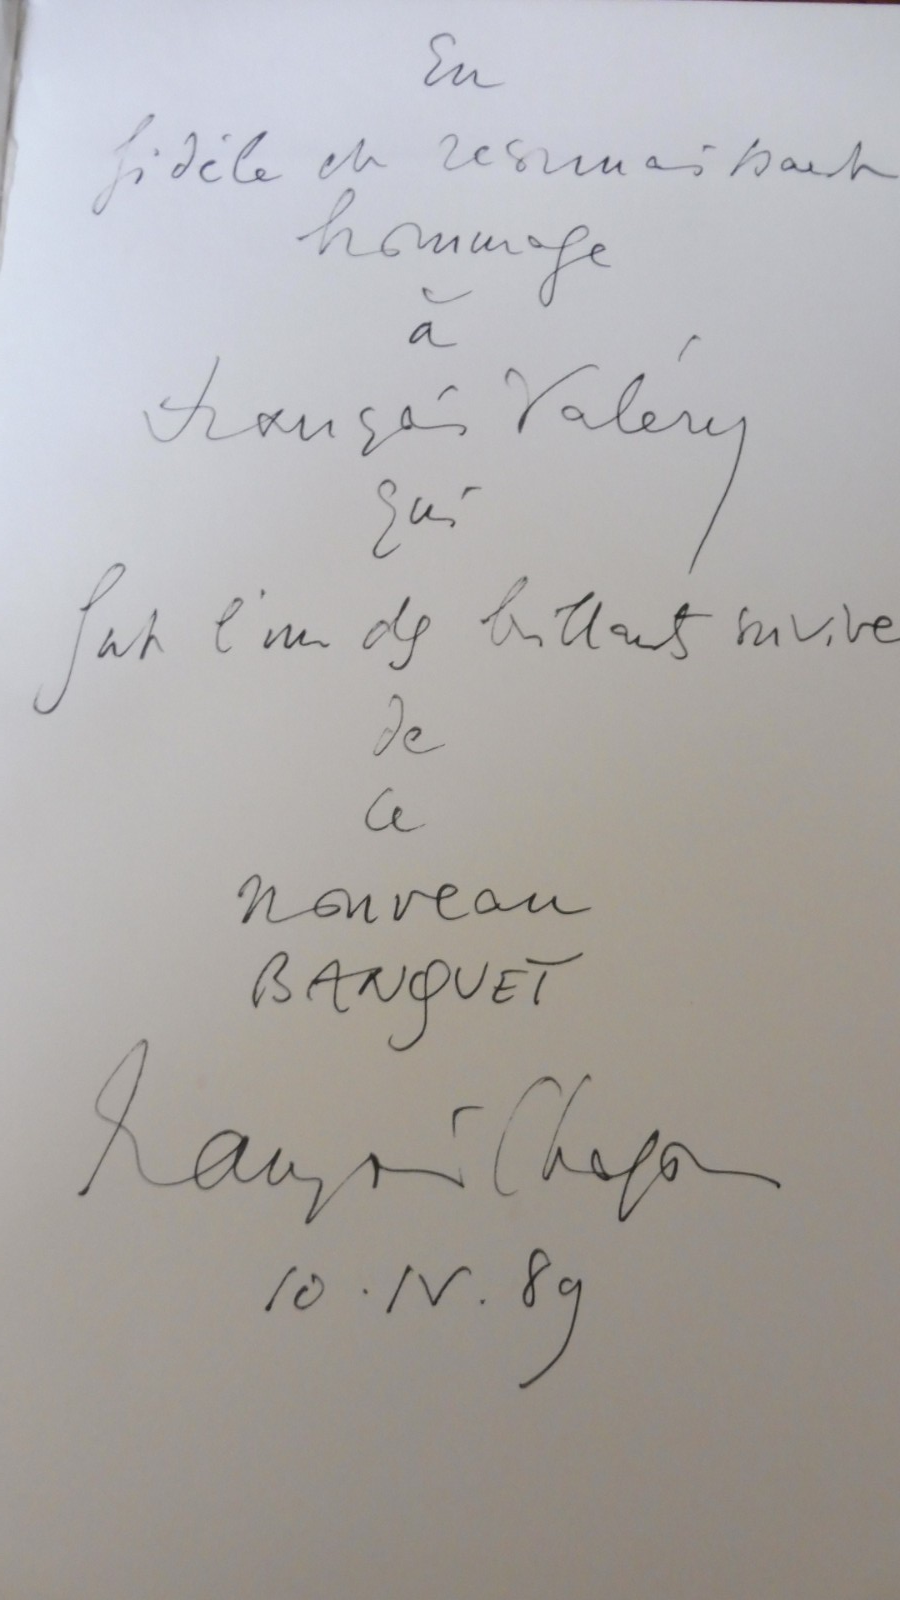 En
fidèle et reconnaissant
hommage
à
François Valéry
qui
fut l'un des brillants
de
ce
nouveau
BANQUET
François Chapon
10.IV.89